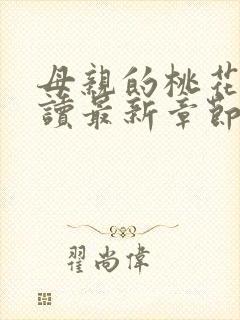 母親的桃花
讀最新章節
翟尚偉